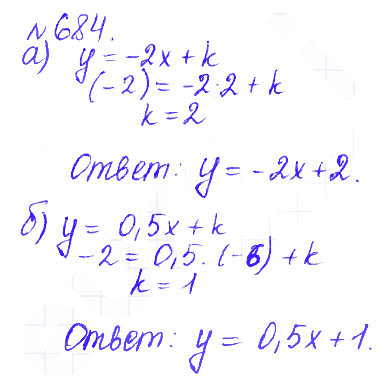 №684.
а) y = -2x + k
(-2) = -2·2 + k
k = 2
Ответ: y = -2x + 2.
б) y = 0,5x + k
-2 = 0,5·(-6) + k
k = 1
Ответ: y = 0,5x + 1.